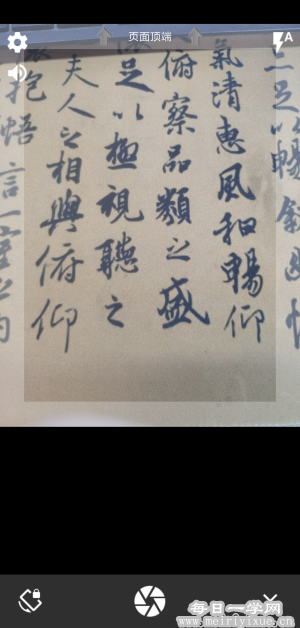 页面顶端
A
足以暢叙幽情
氣清惠風和暢仰
俯察品類之盛
足以極視聽之
夫人之相與俯仰
抱悟言一室之内
每日一学网
www.meiriyixue.cn